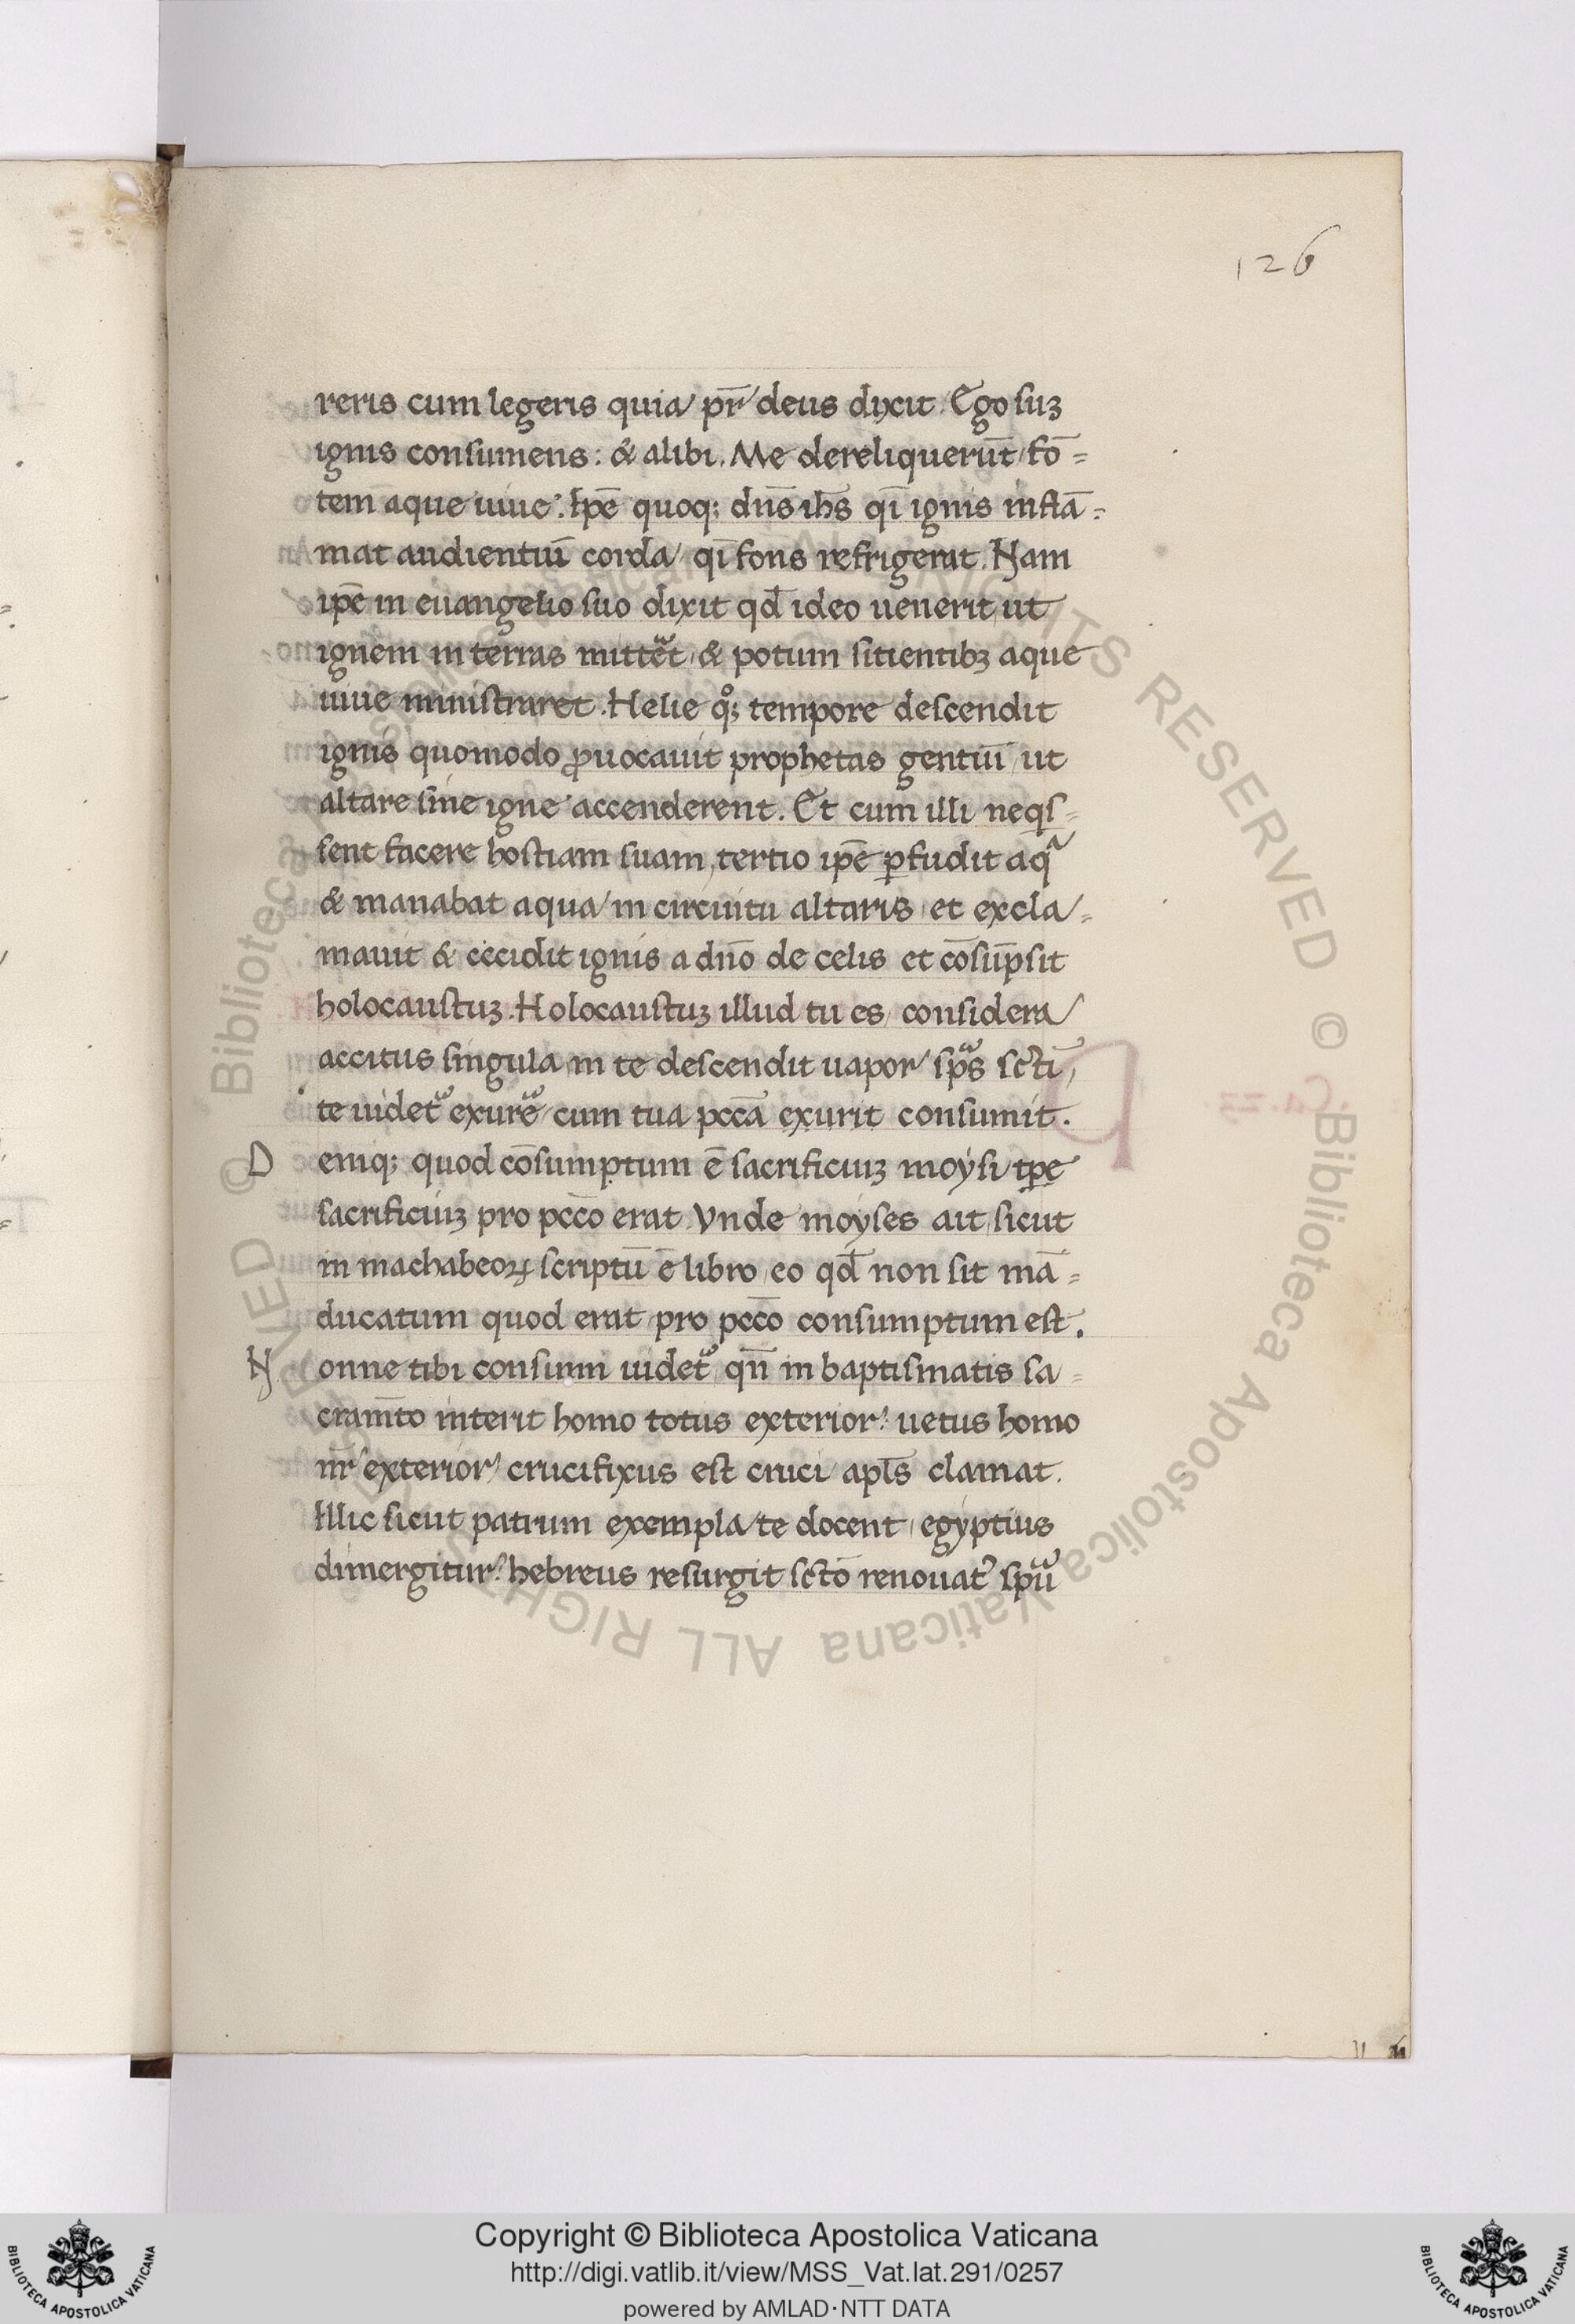 126
reris cum legeris quia pr̄ deus dixit. Ego suꝫ
ignis consumens: & alibi. Me dereliquerūt fō=
tem aque uiue. Ipē quoq; dn̄s ih̄s qī ignis inflā=
mat audientiū corda/ qī fons refrigerat. Nam
ipē in euangelio suo dixit qd̄ ideo uenerit ut
ignem in terras mittet & potum sitientibꝫ aque
uiue ministraret. Helie qͦ; tempore descendit
ignis quomodo ꝓuocauit prophetas gentiū ut
altare sine igne accenderent. Et cum illi neqs=
sent facere hostiam suam, tertio ipē ꝑfudit aq̄
& manabat aqua/ in circuitu altaris et excla/=
mauit & cecidit ignis a dn̄o de celis et cōsūpsit
holocaustuꝫ. Holocaustuꝫ illud tu es, considera/
accitus singula, in te descendit uapor sp̄s sc̄ti,
te uidet exure/ cum tua pcc̄a exurit consumit.
D eniq; quod cōsumptum ē sacrificiuꝫ moysi tꝑe
sacrificiuꝫ pro pcc̄o erat. Vnde moyses ait, sicut
in machabeoꝝ scriptū ē libro, eo qd̄ non sit mā=
ducatum quod erat pro pcc̄o consumptum est.
N onne tibi consumi uidet qn̄ in baptismatis sa=
cram̄to interit homo totus exterior? uetus homo
nr̄ exterior/ crucifixus est cruci apl̄s clamat.
Illic sicut patrum exempla/ te docent, egyptius
dimergitur? hebreus resurgit sc̄tō renouat sp̄u
Copyright © Biblioteca Apostolica Vaticana
http://digi.vatlib.it/view/MSS_Vat.lat.291/0257
powered by AMLAD·NTT DATA
BIBLIOTECA APOSTOLICA VATICANA
BIBLIOTECA APOSTOLICA VATICANA
© Biblioteca Apostolica Vaticana ALL RIGHTS RESERVED
© Biblioteca Apostolica Vaticana ALL RIGHTS RESERVED